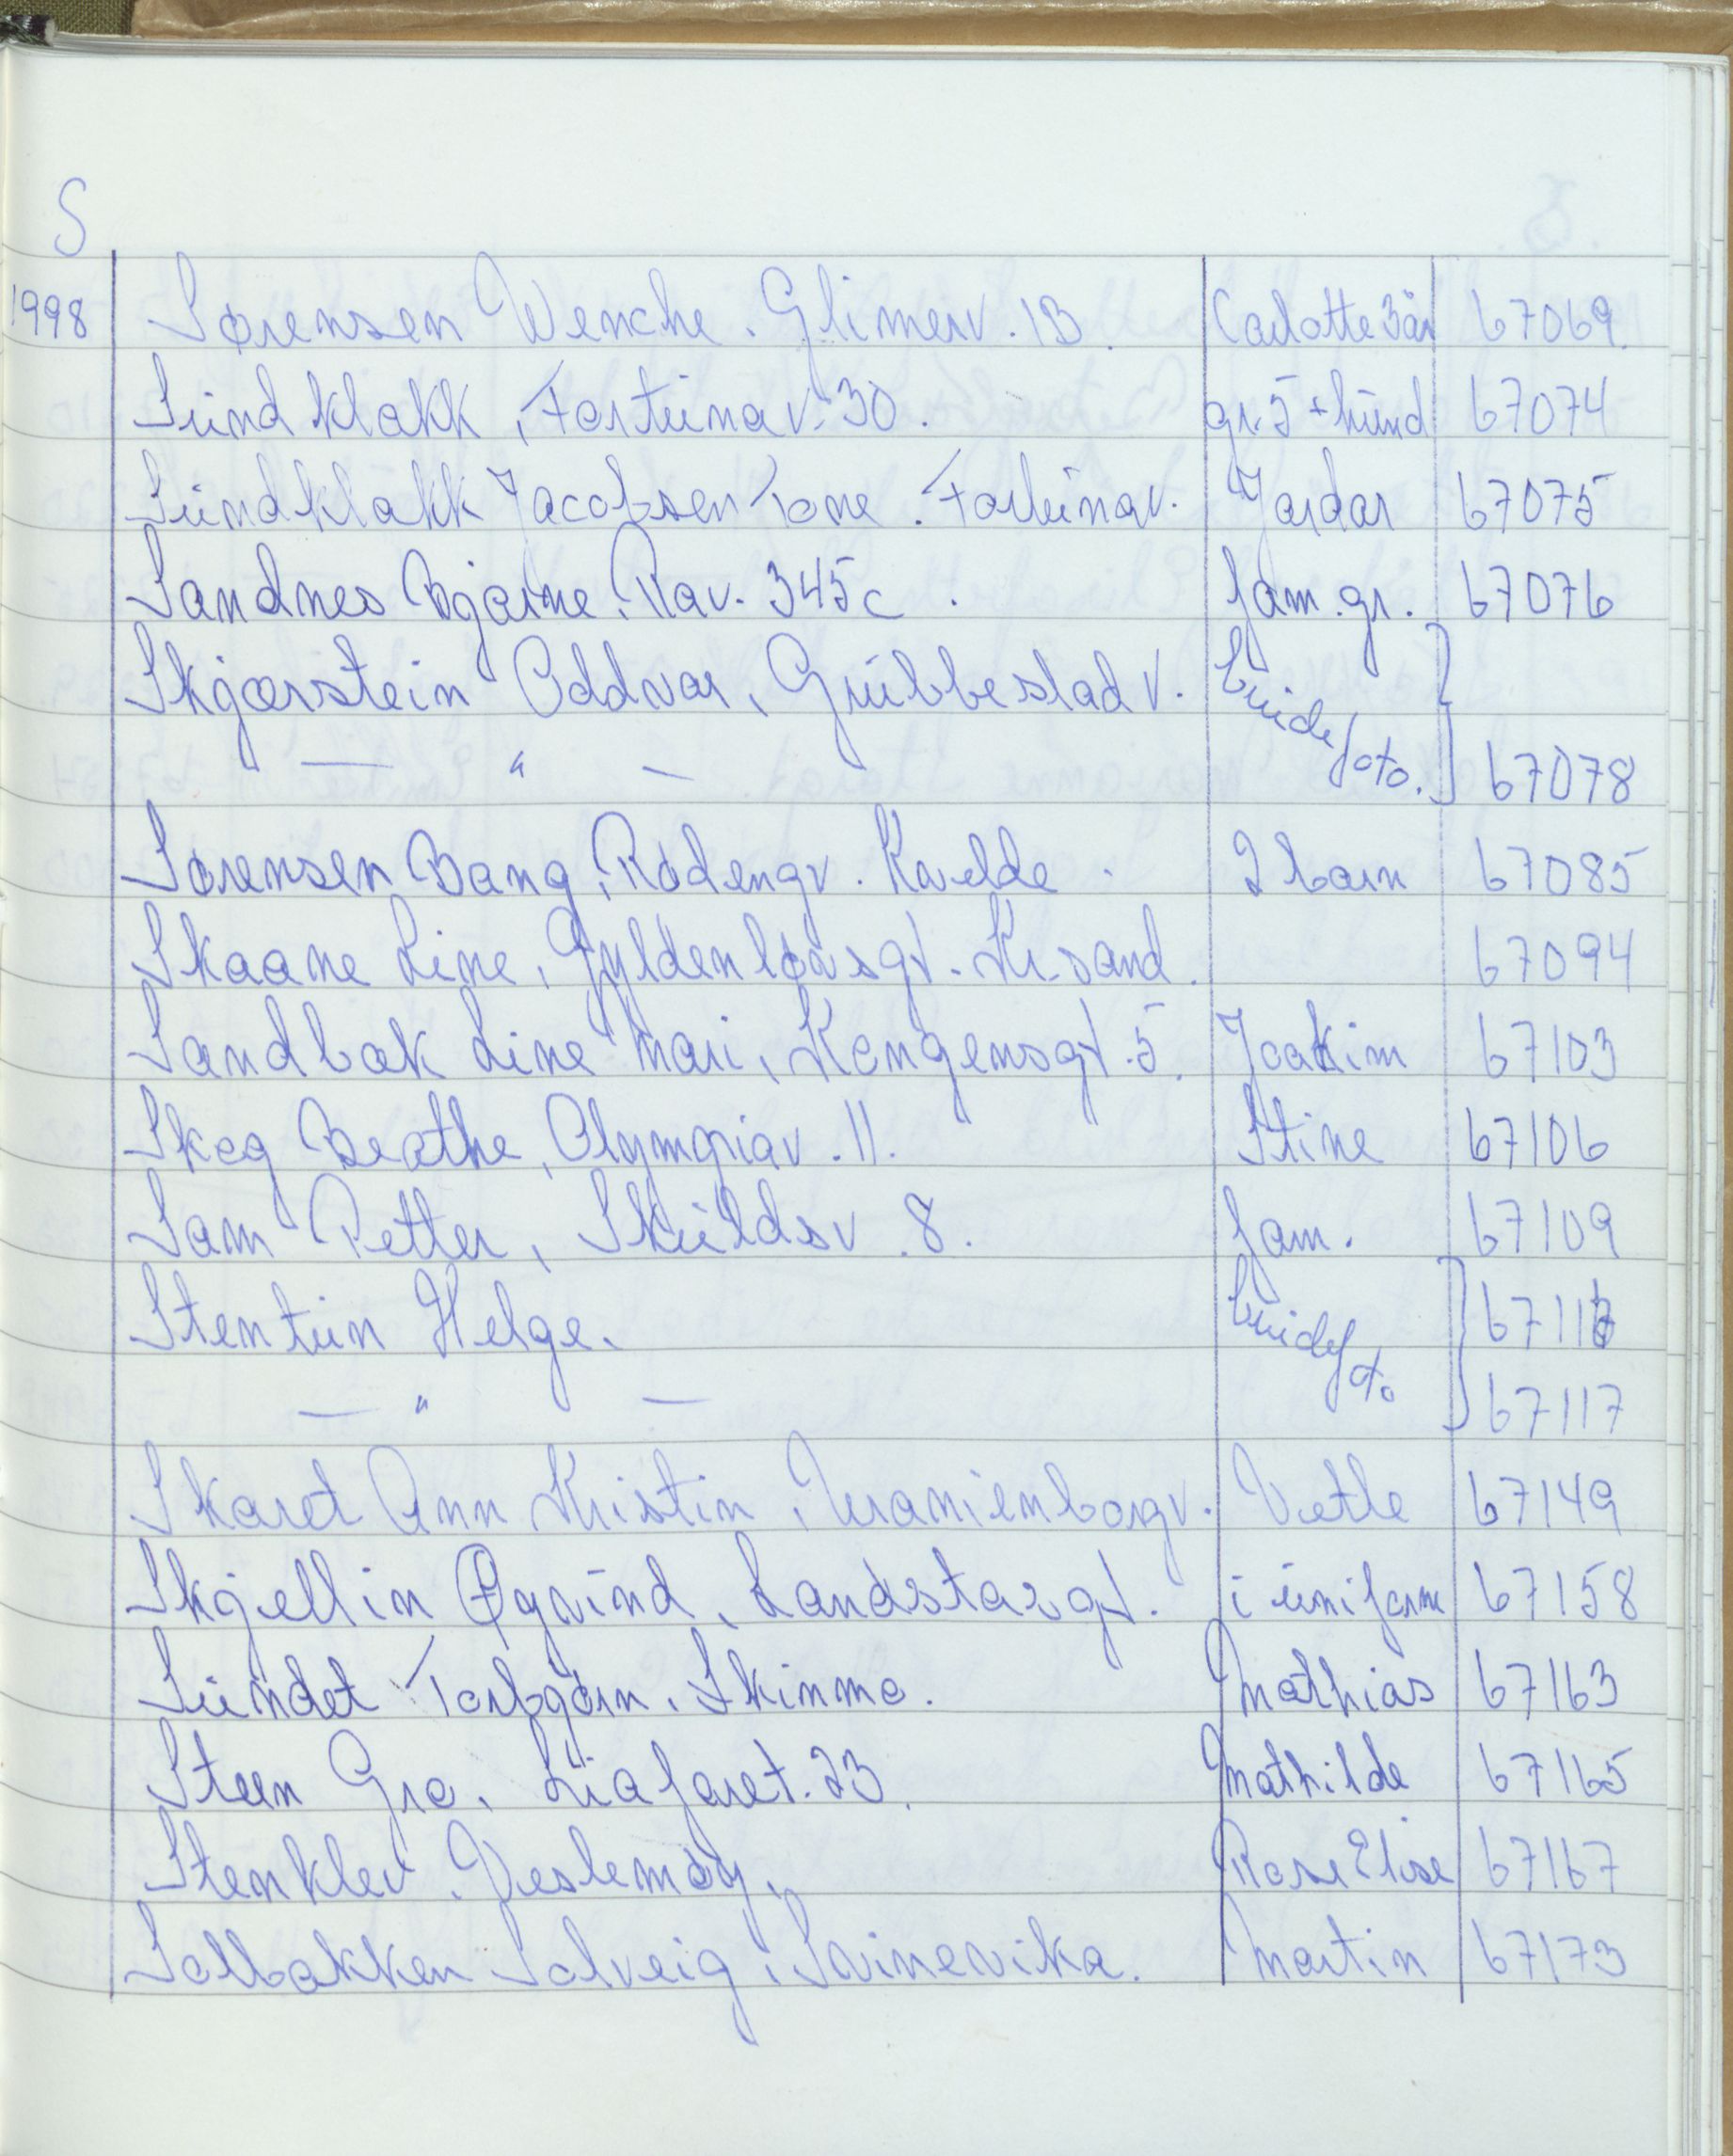 S
1998 Sørensen Wenche. Glimerv. 13. Carlotte 3år 67069.
Sundklakk, Fortunav. 30. gr. 5 + hund 67074
Sundklakk Jacobsen Tone. Fortunav. Jardar 67075
Sandnes Bjarne, Rav. 345c. fam. gr. 67076
Skjærstein Oddvar, Grubbestad v. brude
— " — foto. 67078
Sørensen Bang, Rødengv. Kvelde. 2 barn 67085
Skaane Line, Gyldenløvsgt. Kr.sand. 67094
Sandbak Line Mari, Kongensgt. 5. Joakim 67103
Skog Beathe, Olympiav. 11. Stine 67106
Sam Petter, Skuldsv. 8. fam. 67109
Stentun Helge. brudef 67116
— " — oto 67117
Skaret Ann Kristin, Uranienborgv. Vetle 67149
Skjellin Øyvind, Landstadsgt. i uniform 67158
Sundet Torbjørn, Skinmo. Mathias 67163
Steen Gro, Liafaret. 23. Mathilde 67165
Stenklev. Veslemøy, Rose Elise 67167
Solbakken Solveig, Svinevika. Martin 67173